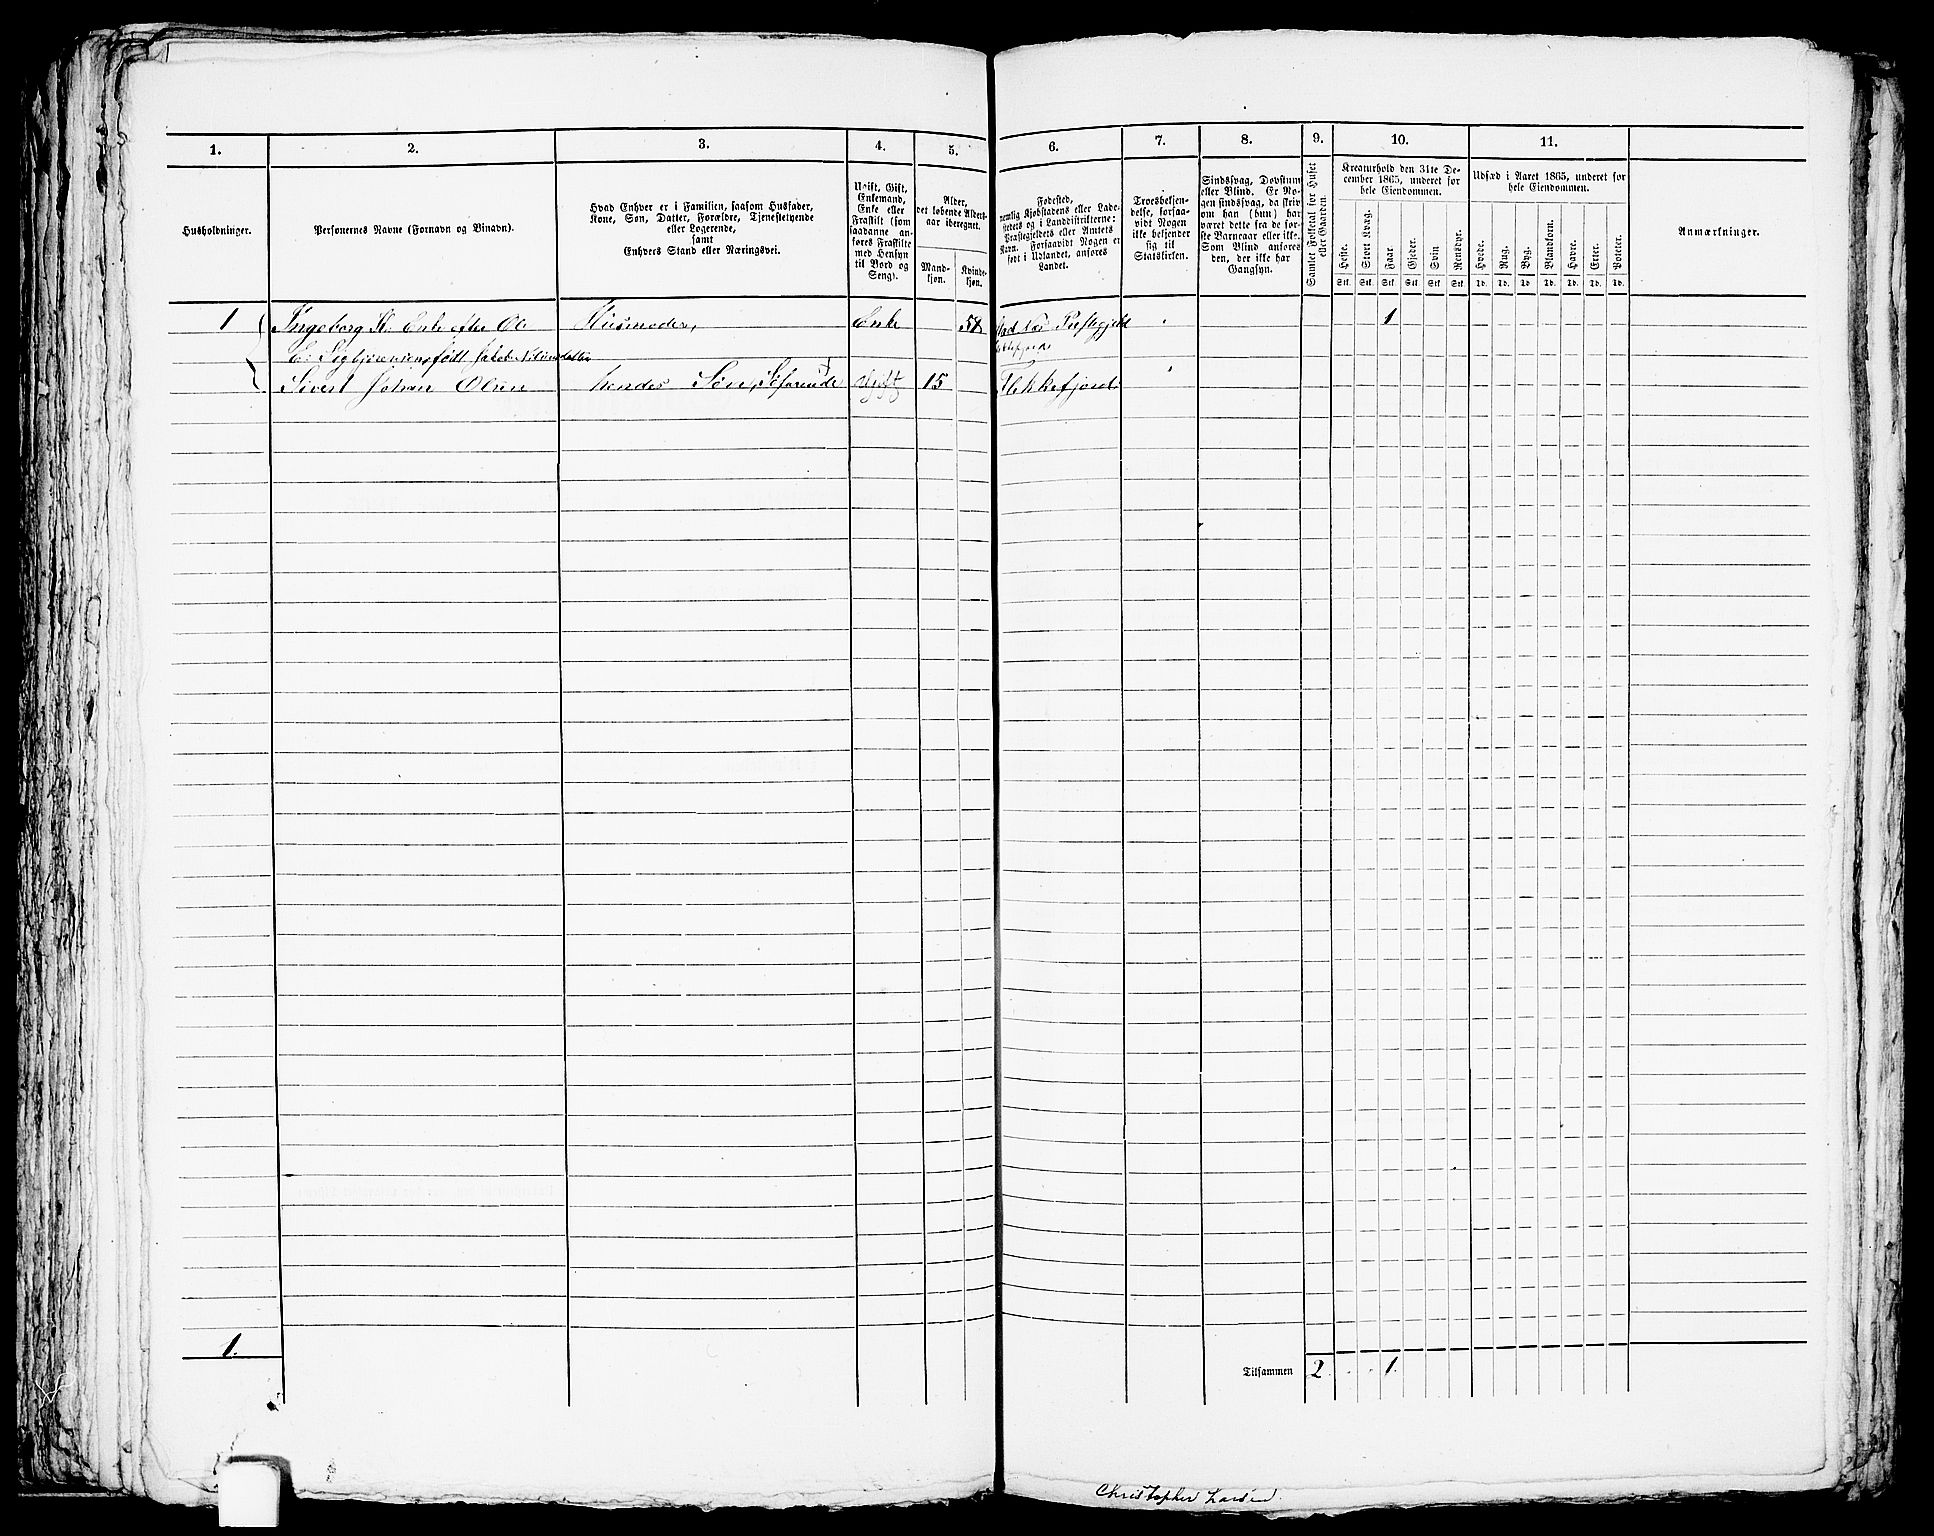 1. 2. 3. 4. 5. 6. 7. 8. 9. 10. 11.
Husholdninger.
Personernes Navne (Fornavn og Tilnavn).
Hvad Enhver er i Familien, saasom Husfader,
Kone, Søn, Datter, Forældre, Tjenestetyende
eller Logerende,
samt
Enhvers Stand eller Næringsvei.
Ugift, Gift,
Enkemand,
Enke eller
Fraskilt (som
saadanne an-
føres Fraskilte
med Hensyn
til Bord og
Seng).
Alder,
det løbende Alders-
aar iberegnet.
Mand-
kjøn.
Kvinde-
kjøn.
Fødested,
nemlig Kjøbstadens eller Lade-
stedets og i Landdistrikterne:
Præstegjeldets eller Amtets
Navn. Forsaavidt Nogen er
født i Udlandet, anføres
Landet.
Troesbekjen-
delse, forsaa-
vidt Nogen
ikke bekjender
sig til
Statskirken.
Sindssvag, Døvstum
eller Blind. Er No-
gen sindssvag, da skriv
om han (hun) har
været dette fra de før-
ste Barneaar eller ikke.
Som Blind anføres
den, der ikke har
Gangsyn.
Samlet Folketal for Huset
eller Gaarden.
Kreaturhold den 31te De-
cember 1865, underet for
hele Eiendommen.
Heste. Stort Kvæg. Faar. Gjeder. Svin Rensdyr.
Stk. Stk. Stk. Stk. Stk. Stk.
Udsæd i Aaret 1865, underet for
hele Eiendommen.
Hvede. Rug. Byg. Blandkorn. Havre. Erter. Poteter.
Td. Td. Td. Td. Td. Td. Td.
Anmærkninger.
1 Ingeborg K. Enke efter Ol Husmoder, Enke 58 Præstegjeld 1
E. født
Sivert Johan Olsen hendes Søn, Søfarende Ugift 15 Flekkefjord
1.
Tilsammen 2 1.
Christopher Larsen